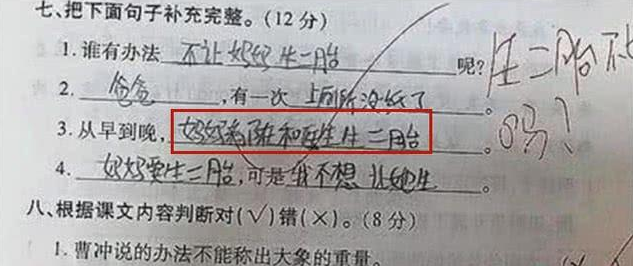 七、把下面句子补充完整。(12分)
1. 谁有办法 不让妈妈生二胎 呢?
生二胎不
2. 爸爸,有一次 上厕所没纸了。
吗?
3. 从早到晚,妈妈 和医生生二胎。
4. 妈妈要生二胎,可是 我不想让她生。
八、根据课文内容判断对(√)错(×)。(8分)
1. 曹冲说的办法不能称出大象的重量。